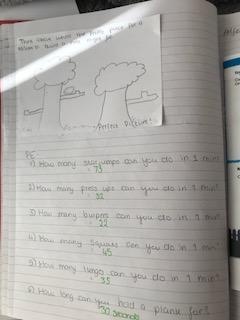 Think about where the
place for a
Perfect Picture!
PE
1) How many starjumps can you do in 1 min?
= 73
2) How many press ups can you do in 1 min?
= 32
3) How many burpees can you do in 1 min?
= 22
4) How many squats can you do in 1 min?
45
5) How many lunges can you do in 1 min?
35
6) How long can you hold a plank for?
30 seconds